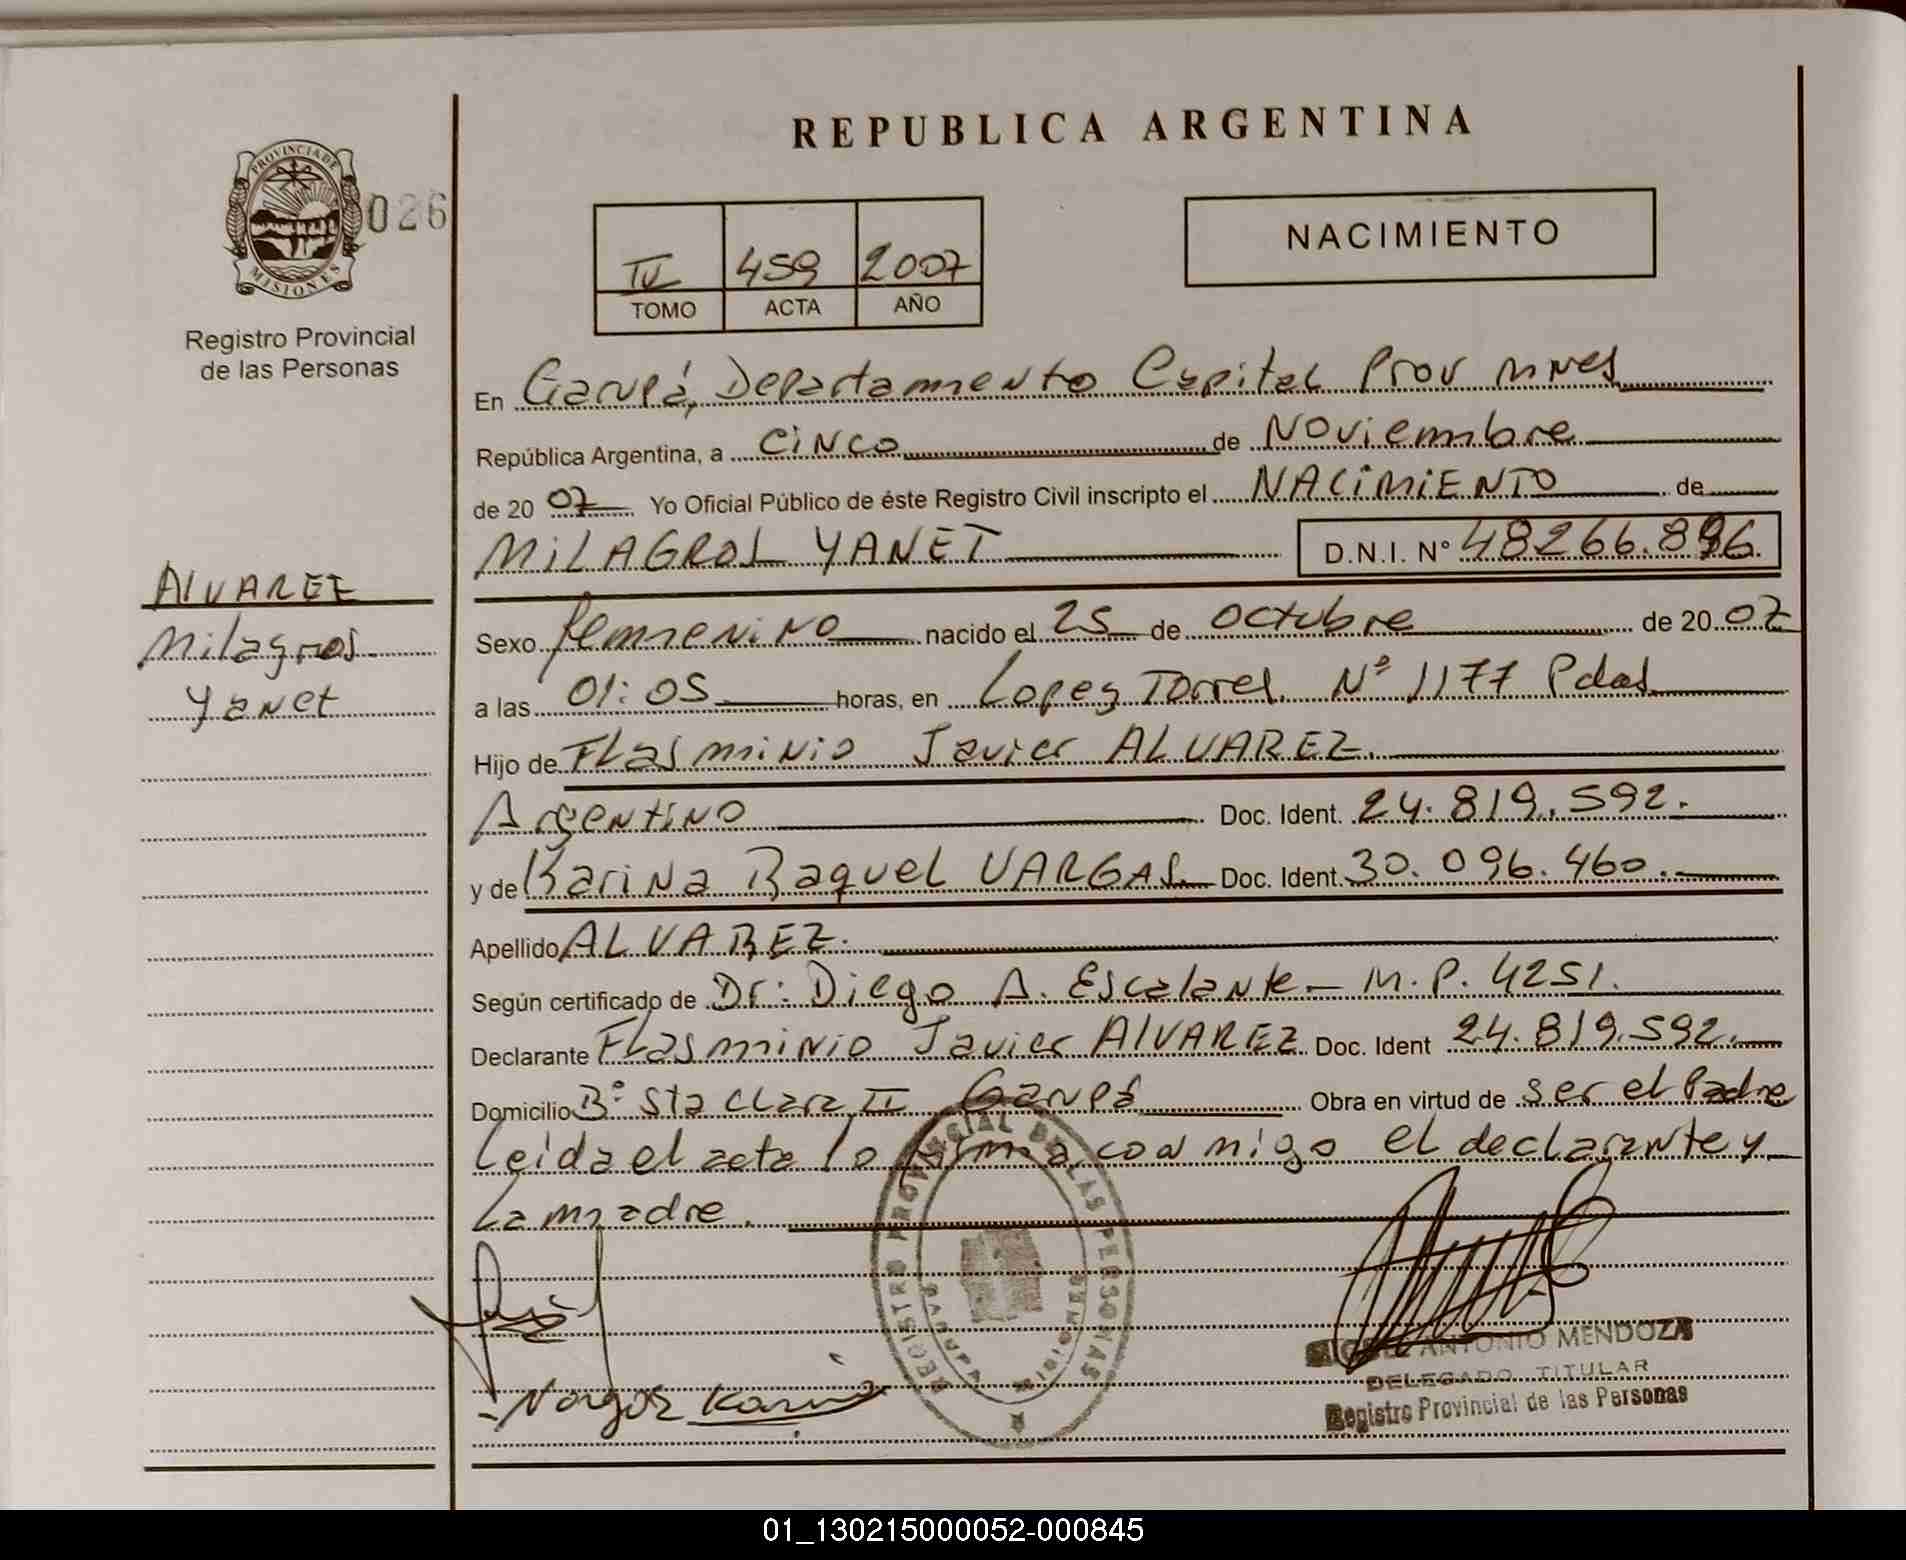 REPUBLICA ARGENTINA
PROVINCIA DE
MISIONES
026
Registro Provincial
de las Personas
IV 459 2007
TOMO ACTA AÑO
NACIMIENTO
En Garupá, Departamento Capital Prov Mnes
República Argentina, a Cinco de Noviembre
de 2007 Yo Oficial Público de éste Registro Civil inscripto el NACIMIENTO de
MILAGROS YANET D.N.I. Nº 48266.896
ALVAREZ
Milagros
Yanet
Sexo femenino nacido el 25 de Octubre de 2007
a las 01:05 horas, en Lopez Torres Nº 1177 Pdas
Hijo de Flasminio Javier ALVAREZ.
Argentino Doc. Ident. 24.819.592.
y de Karina Raquel VARGAS Doc. Ident. 30.096.460.
Apellido ALVAREZ.
Según certificado de Dr: Diego A. Escalante - M.P. 4251.
Declarante Flasminio Javier ALVAREZ Doc. Ident 24.819.592.
Domicilio Bº Sta Clara II Garupá Obra en virtud de ser el Padre
Leida el acta lo firma con migo el declarante y
La madre.
REGISTRO PROVINCIAL DE LAS PERSONAS
MISIONES
ANTONIO MENDOZA
DELEGADO TITULAR
Registro Provincial de las Personas
Vargas Karina
01_130215000052-000845